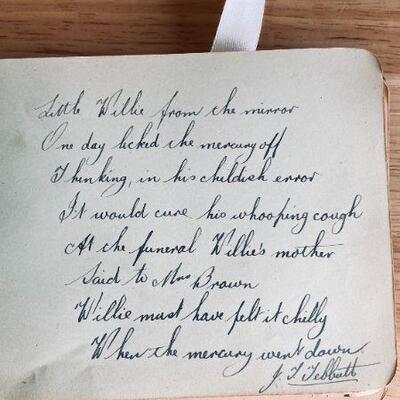 Little Willie from the mirror
One day licked the mercury off
Thinking, in his childish error
It would cure his whooping cough
At the funeral Willie's mother
Said to Mrs Brown
Willie must have felt it chilly
When the mercury went down.
J. T Tebbutt